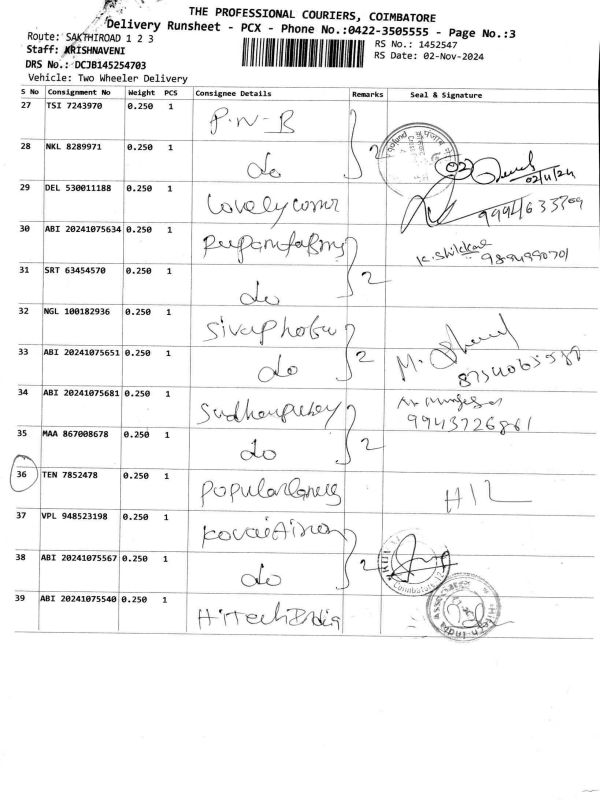 THE PROFESSIONAL COURIERS, COIMBATORE
Delivery Runsheet - PCX - Phone No.:0422-3505555 - Page No.:3
Route: SAKTHIROAD 1 2 3
RS No.: 1452547
Staff: KRISHNAVENI
RS Date: 02-Nov-2024
DRS No.: DCJB145254703
Vehicle: Two Wheeler Delivery
S No Consignment No Weight PCS Consignee Details Remarks Seal & Signature
27 TSI 7243970 0.250 1 P.N-B
28 NKL 8289971 0.250 1 do 2 02/11/24
29 DEL 530011188 0.250 1 Lovely corner 9994633309
30 ABI 20241075634 0.250 1
31 SRT 63454570 0.250 1 do 2
32 NGL 100182936 0.250 1
33 ABI 20241075651 0.250 1 do 2 M.
34 ABI 20241075681 0.250 1 9943726861
35 MAA 867008678 0.250 1 do 2
36 TEN 7852478 0.250 1
37 VPL 948523198 0.250 1
38 ABI 20241075567 0.250 1 do 2 Coimbatore
39 ABI 20241075540 0.250 1 HiTech India Hitech India